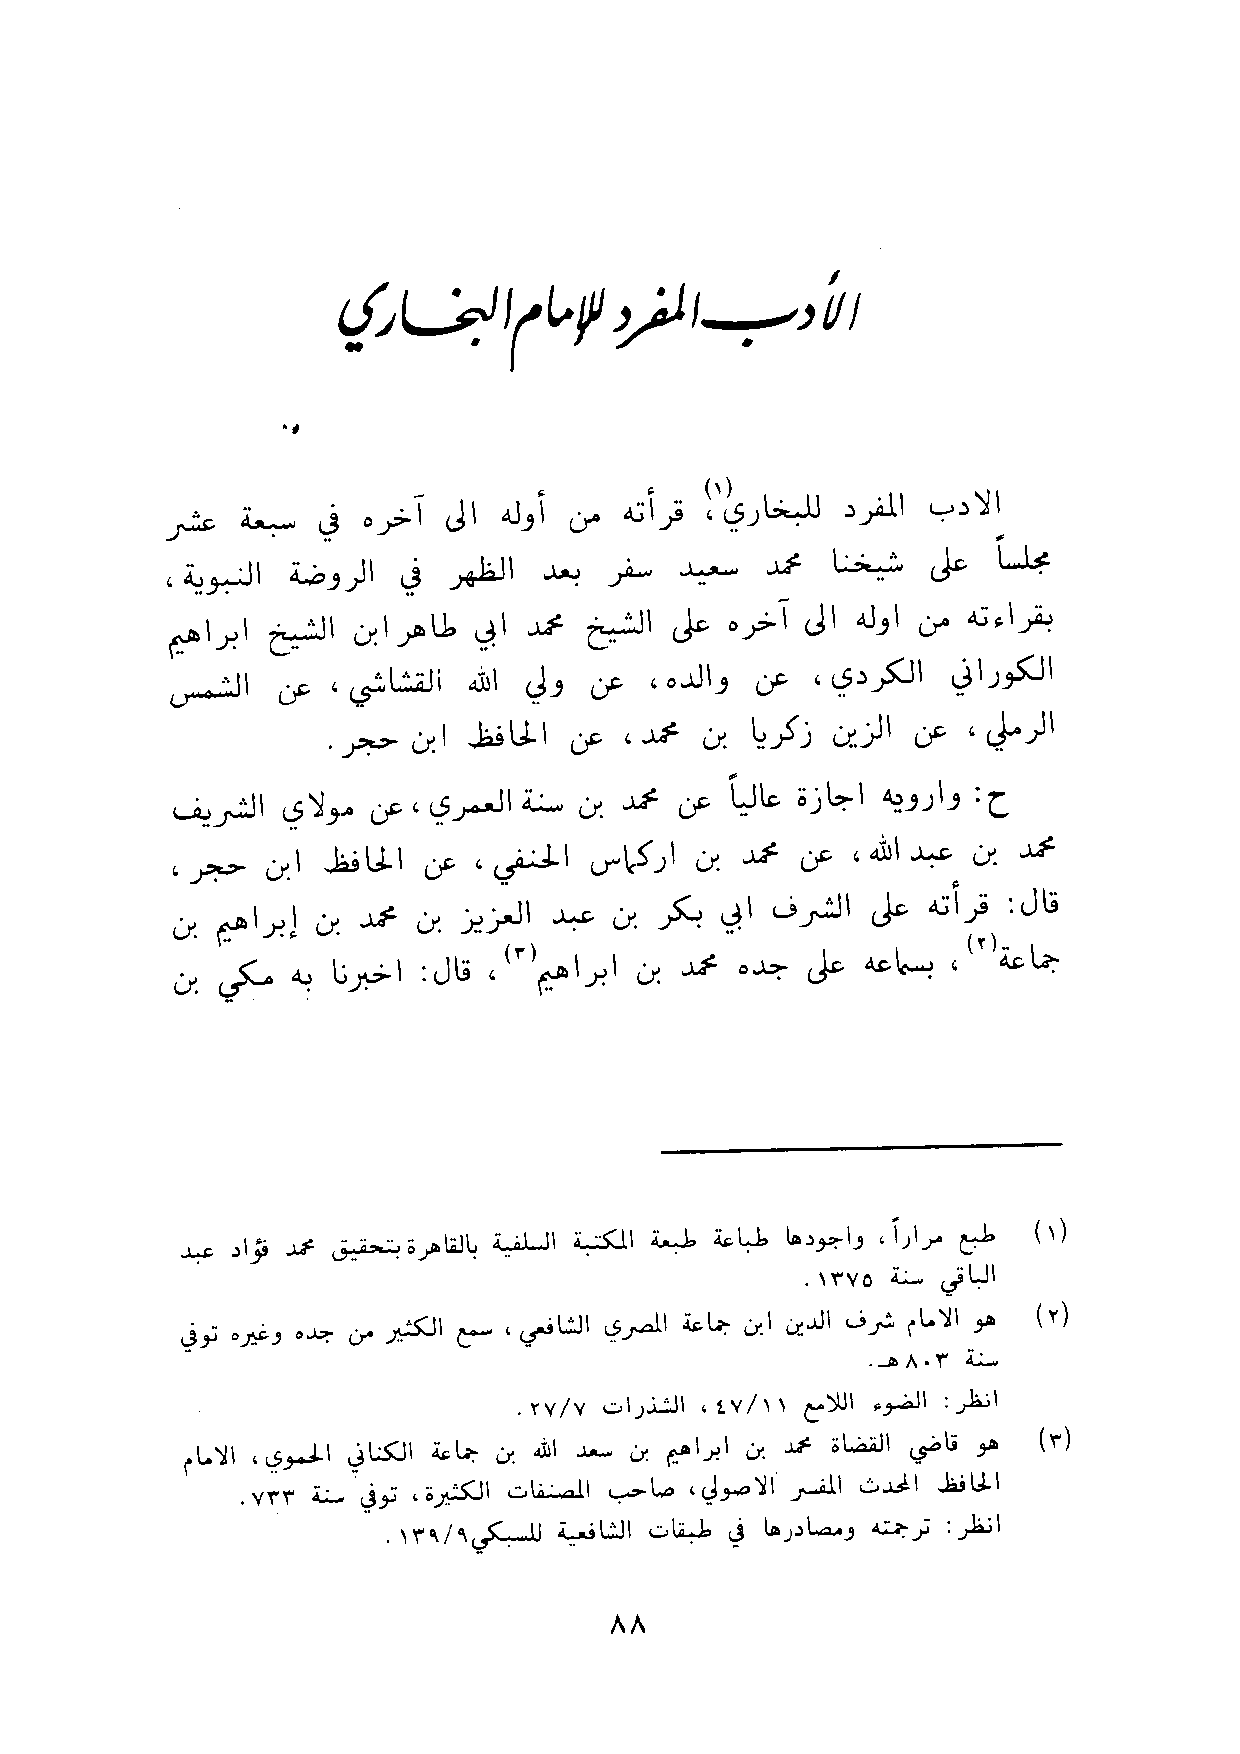 الأدب المفرد للإمام البخاري
الادب المفرد للبخاري(١)، قرأته من أوله الى آخره في سبعة عشر
مجلساً على شيخنا محمد سعيد سفر بعد الظهر في الروضة النبوية،
بقراءته من اوله الى آخره على الشيخ محمد ابي طاهر ابن الشيخ ابراهيم
الكوراني الكردي، عن والده، عن ولي الله القشاشي، عن الشمس
الرملي، عن الزين زكريا بن محمد، عن الحافظ ابن حجر.
ح: وارويه اجازة عالياً عن محمد بن سنة العمري، عن مولاي الشريف
محمد بن عبد الله، عن محمد بن اركماس الحنفي، عن الحافظ ابن حجر،
قال: قرأته على الشرف ابي بكر بن عبد العزيز بن محمد بن إبراهيم بن
جماعة(٢)، بسماعه على جده محمد بن ابراهيم(٣)، قال: اخبرنا به مكي بن
(١) طبع مراراً، واجودها طباعة طبعة المكتبة السلفية بالقاهرة بتحقيق محمد فؤاد عبد
الباقي سنة ١٣٧٥.
(٢) هو الامام شرف الدين ابن جماعة المصري الشافعي، سمع الكثير من جده وغيره توفي
سنة ٨٠٣ هـ.
انظر: الضوء اللامع ٤٧/١١، الشذرات ٢٧/٧.
(٣) هو قاضي القضاة محمد بن ابراهيم بن سعد الله بن جماعة الكناني الحموي، الامام
الحافظ المحدث المفسر الاصولي، صاحب المصنفات الكثيرة، توفي سنة ٧٣٣.
انظر: ترجمته ومصادرها في طبقات الشافعية للسبكي ١٣٩/٩.
٨٨